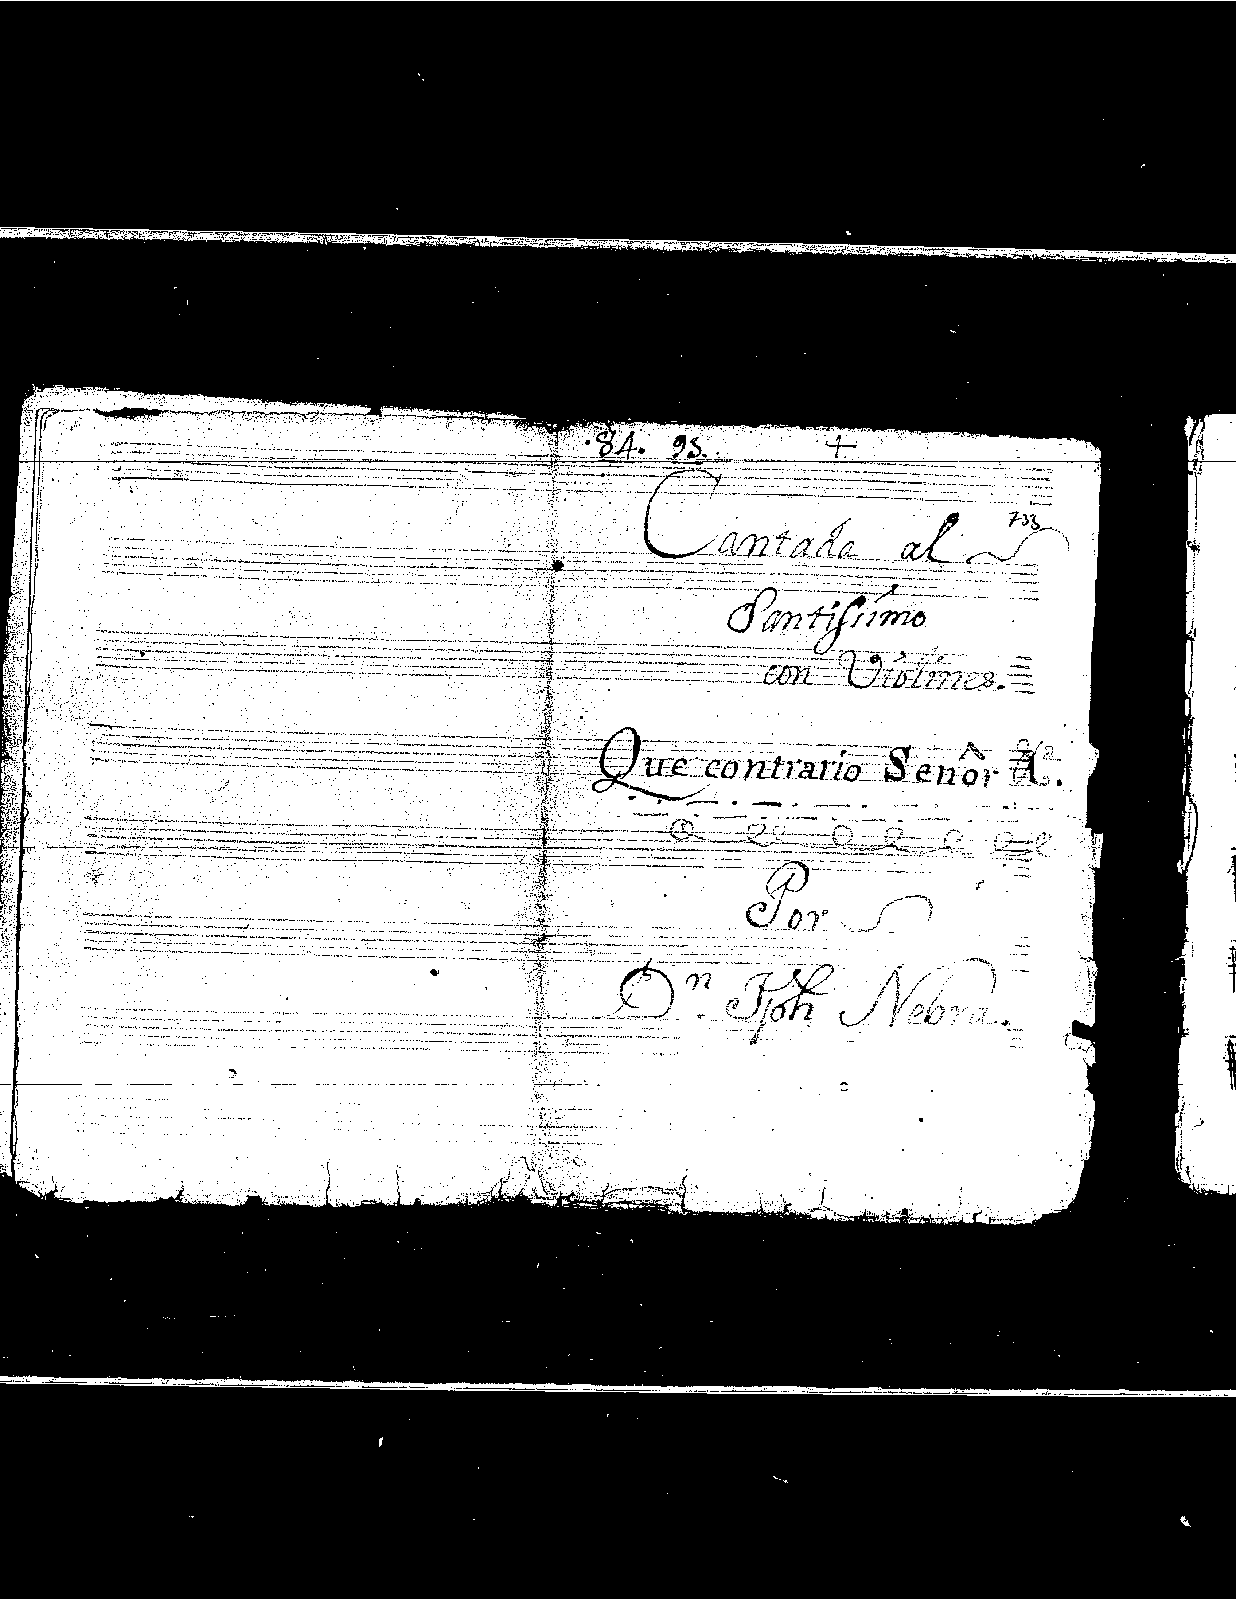 ·84. 95. +
Cantada al
733
Santisimo
con Violines.
Que contrario Señor
Por
Dn. Jph Nebra.